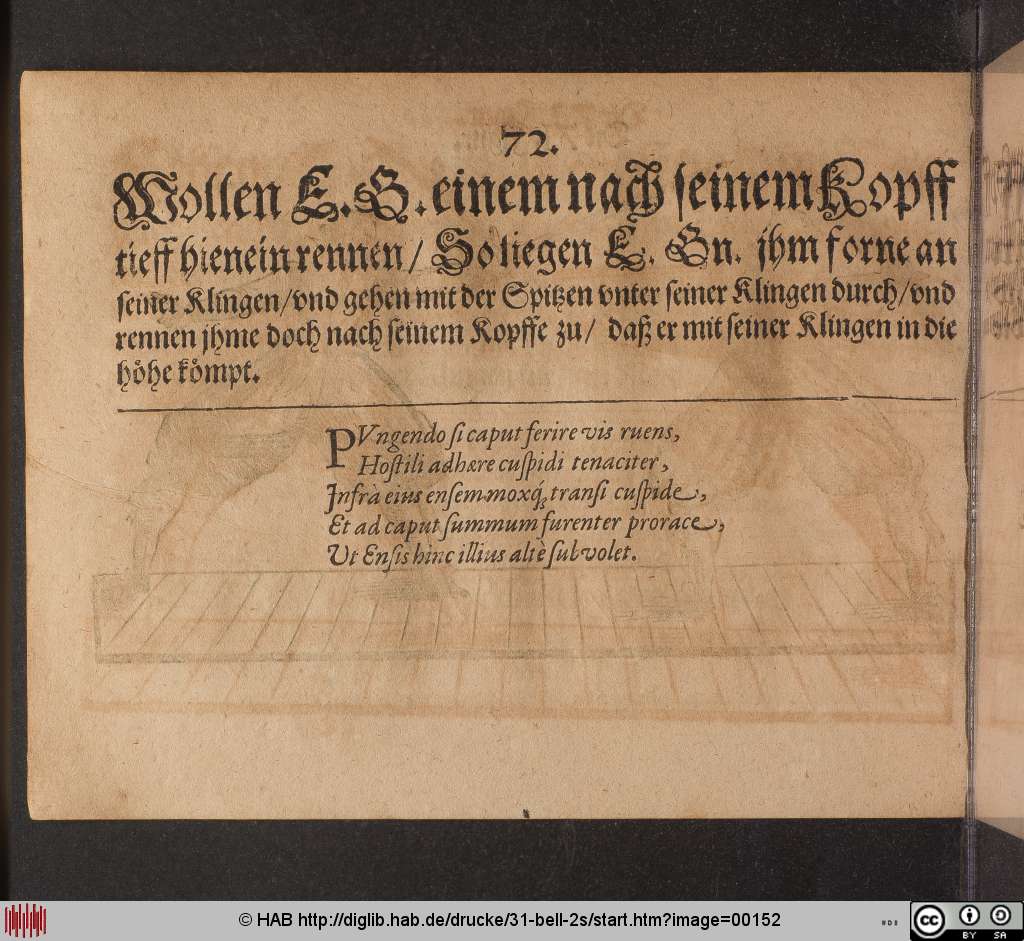 72.
Wollen E. G. einem nach seinem Kopff
tieff hienein rennen/ So liegen E. Gn. jhm forne an
seiner Klingen/vnd gehen mit der Spitzen vnter seiner Klingen durch/vnd
rennen jhme doch nach seinem Kopffe zu/ daß er mit seiner Klingen in die
höhe kömpt.
PVngendo si caput ferire vis ruens,
Hostili adhære cuspidi tenaciter,
Infrà eius ensem, moxq́; transi cuspide,
Et ad caput summum furenter prorace,
Ut Ensis hinc illius altè subvolet.
© HAB http://diglib.hab.de/drucke/31-bell-2s/start.htm?image=00152
cc BY SA